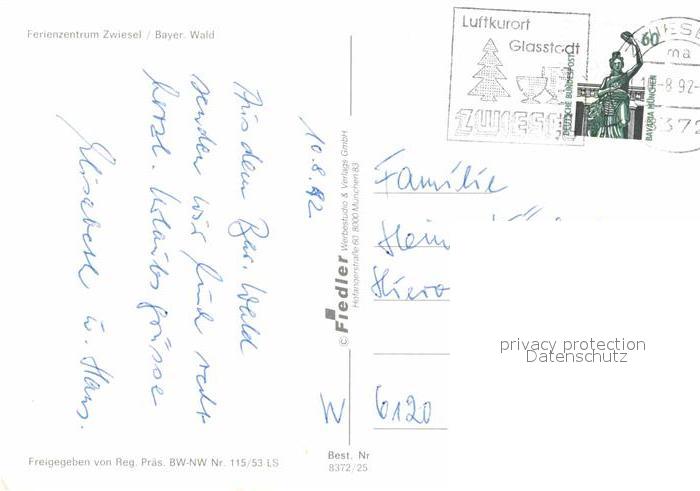 Ferienzentrum Zwiesel / Bayer. Wald
Luftkurort
Glasstadt
ZWIESEL
60
DEUTSCHE BUNDESPOST
BAVARIA MÜNCHEN
-8.92-
372
10.8.92
Aus dem Bay. Wald
senden wir Euch recht
herzl. Urlaubsgrüsse
Elisabeth u. Hans.
© Fiedler Werbestudio & Verlags GmbH
Hofangerstraße 60, 8000 München 83
Familie
Hein
W 6120
privacy protection
Datenschutz
Freigegeben von Reg. Präs. BW-NW Nr. 115/53 LS
Best. Nr
8372/25